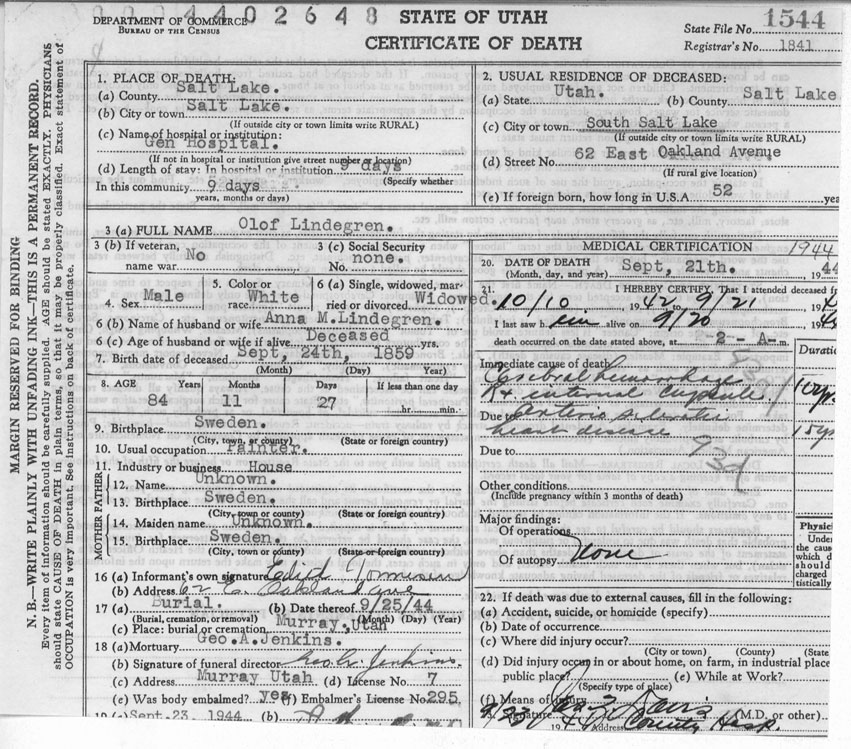 0004402648
DEPARTMENT OF COMMERCE
BUREAU OF THE CENSUS
STATE OF UTAH
CERTIFICATE OF DEATH
State File No. 1544
Registrar's No. 1841
MARGIN RESERVED FOR BINDING
N. B.—WRITE PLAINLY WITH UNFADING INK—THIS IS A PERMANENT RECORD.
Every item of information should be carefully supplied. AGE should be stated EXACTLY. PHYSICIANS
should state CAUSE OF DEATH in plain terms, so that it may be properly classified. Exact statement of
OCCUPATION is very important See instructions on back of certificate.
1. PLACE OF DEATH:
(a) County Salt Lake.
(b) City or town Salt Lake.
(If outside city or town limits write RURAL)
(c) Name of hospital or institution:
Gen Hospital.
(If not in hospital or institution give street number or location)
(d) Length of stay: In hospital or institution 9 days
(Specify whether
In this community 9 days
years, months or days)
2. USUAL RESIDENCE OF DECEASED:
(a) State Utah. (b) County Salt Lake
(c) City or town South Salt Lake
(If outside city or town limits write RURAL)
(d) Street No. 62 East Oakland Avenue
(If rural give location)
(e) If foreign born, how long in U.S.A 52 yea
3 (a) FULL NAME Olof Lindegren.
3 (b) If veteran, name war No
3 (c) Social Security No. none.
4. Sex Male
5. Color or race White
6 (a) Single, widowed, married or divorced Widowed.
6 (b) Name of husband or wife Anna M.Lindegren.
6 (c) Age of husband or wife if alive Deceased yrs.
7. Birth date of deceased Sept, 24th, 1859
(Month) (Day) (Year)
8. AGE Years Months Days If less than one day
84 11 27 hr. min.
9. Birthplace Sweden.
(City, town, or county) (State or foreign country)
10. Usual occupation Painter.
11. Industry or business House
FATHER
12. Name Unknown.
13. Birthplace Sweden.
(City, town, or county) (State or foreign country)
MOTHER
14. Maiden name Unknown.
15. Birthplace Sweden.
(City, town or county) (State or foreign country)
16 (a) Informant's own signature Edith
(b) Address 62 E. Oakland ave
17 (a) Burial. (b) Date thereof 9/25/44
(Burial, cremation, or removal) (Month) (Day) (Year)
(c) Place: burial or cremation Murray.Utah
18 (a) Mortuary Geo.A.Jenkins.
(b) Signature of funeral director Geo. A. Jenkins.
(c) Address Murray Utah (d) License No. 7
(e) Was body embalmed? yes (f) Embalmer's License No. 295.
19 (a) Sept.23, 1944 (b)
MEDICAL CERTIFICATION 1944
20. DATE OF DEATH Sept, 21th. 1944
(Month, day, and year)
21. I HEREBY CERTIFY, That I attended deceased fr
10/10 1942 to 9/21
I last saw him alive on 9/20
death occurred on the date stated above, at -2- A-m.
Duratio
Immediate cause of death
Cerebral hemorrhage
Rt internal capsule. 10
Due to arterio sclerotic
heart disease 15
93d
Due to
Other conditions
(Include pregnancy within 3 months of death)
Major findings:
Of operations
Of autopsy None
Physici
Unde
the caus
which d
should
charged
tistically
22. If death was due to external causes, fill in the following:
(a) Accident, suicide, or homicide (specify)
(b) Date of occurrence
(c) Where did injury occur?
(City or town) (County) (State
(d) Did injury occur in or about home, on farm, in industrial place
public place? (e) While at Work?
(Specify type of place)
(f) Means of injury
Signature Davis (M.D. or other)
9/23 1944 Address County Hosp.